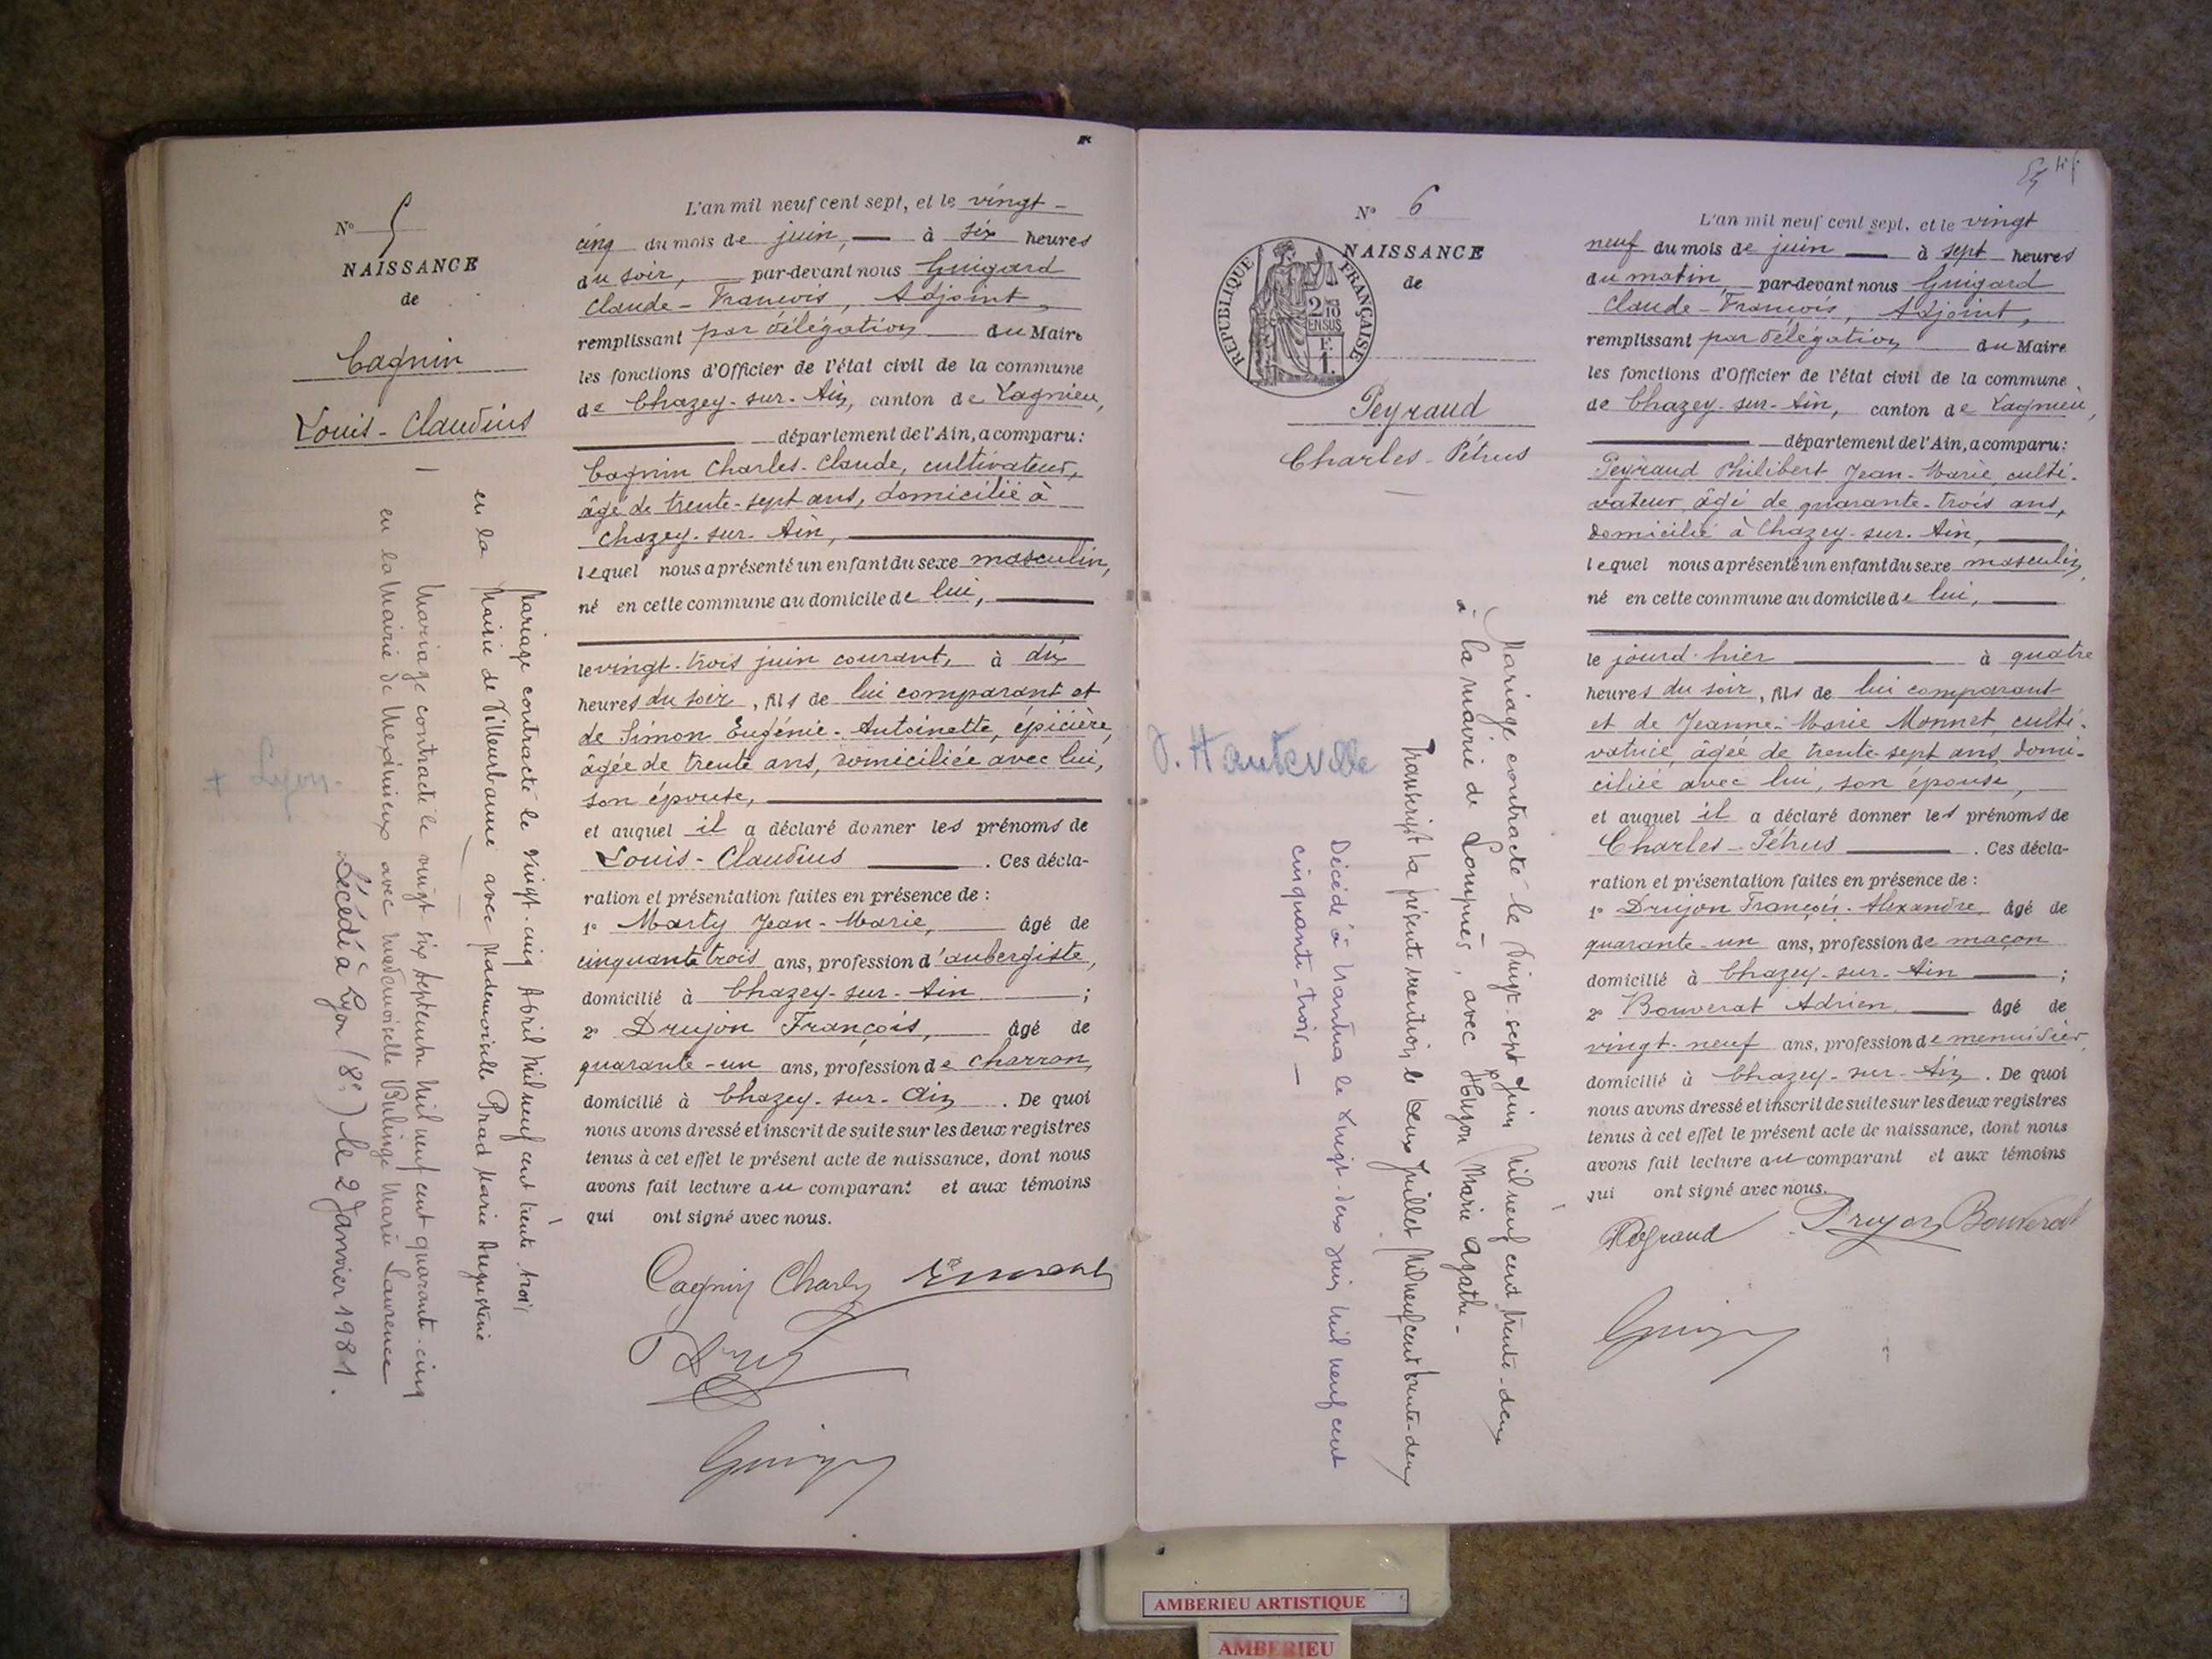 N° 5
NAISSANCE
de
Cagnin
Louis-Claudius
L'an mil neuf cent sept, et le vingt-
cinq du mois de juin, à six heures
du soir, par-devant nous Guigard
Claude-François, Adjoint,
remplissant par délégation du Maire
les fonctions d'Officier de l'état civil de la commune
de Chazey-sur-Ain, canton de Lagnieu,
département de l'Ain, a comparu:
Cagnin Charles-Claude, cultivateur,
âgé de trente-sept ans, domicilié à
Chazey-sur-Ain,
lequel nous a présenté un enfant du sexe masculin,
né en cette commune au domicile de lui,
le vingt-trois juin courant, à dix
heures du soir, fils de lui comparant et
de Simon Eugénie-Antoinette, épicière,
âgée de trente ans, domiciliée avec lui,
son épouse,
et auquel il a déclaré donner les prénoms de
Louis-Claudius. Ces décla-
ration et présentation faites en présence de :
1° Marty Jean-Marie, âgé de
cinquante trois ans, profession d'aubergiste,
domicilié à Chazey-sur-Ain ;
2° Drujon François, âgé de
quarante-un ans, profession de charron,
domicilié à Chazey-sur-Ain. De quoi
nous avons dressé et inscrit de suite sur les deux registres
tenus à cet effet le présent acte de naissance, dont nous
avons fait lecture au comparant et aux témoins
qui ont signé avec nous.
Cagnin Charles
Mariage contracté le vingt-cinq Avril Mil neuf cent trente-trois
en la Mairie de Villeurbanne avec Mademoiselle Prad Marie Augustine
Mariage contracté le vingt-six septembre Mil neuf cent quarante-cinq
en la Mairie de Meximieux avec Mademoiselle Marie Laurence
Décédé à Lyon (8e) le 2 Janvier 1981.
+ Lyon.
N° 6
NAISSANCE
de
REPUBLIQUE FRANÇAISE
Peyraud
Charles-Pétrus
L'an mil neuf cent sept, et le vingt
neuf du mois de juin à sept heures
du matin, par-devant nous Guigard
Claude-François, Adjoint,
remplissant par délégation du Maire
les fonctions d'Officier de l'état civil de la commune
de Chazey-sur-Ain, canton de Lagnieu,
département de l'Ain, a comparu:
Peyraud Philibert Jean-Marie, culti-
vateur, âgé de quarante-trois ans,
domicilié à Chazey-sur-Ain,
lequel nous a présenté un enfant du sexe masculin,
né en cette commune au domicile de lui,
le jourd'hier à quatre
heures du soir, fils de lui comparant
et de Jeanne-Marie Monnet, culti-
vatrice, âgée de trente-sept ans, domi-
ciliée avec lui, son épouse,
et auquel il a déclaré donner les prénoms de
Charles-Pétrus. Ces décla-
ration et présentation faites en présence de :
1° Drujon François-Alexandre, âgé de
quarante-un ans, profession de maçon
domicilié à Chazey-sur-Ain ;
2° Bouverat Adrien, âgé de
vingt-neuf ans, profession de menuisier,
domicilié à Chazey-sur-Ain. De quoi
nous avons dressé et inscrit de suite sur les deux registres
tenus à cet effet le présent acte de naissance, dont nous
avons fait lecture au comparant et aux témoins
qui ont signé avec nous.
Peyraud Drujon Bouverat
Mariage contracté le vingt-sept Juin Mil neuf cent trente-deux
à la mairie de Loupes, avec Huzon Marie Agathe-
Transcrit la présente mention le deux Juillet Mil neuf cent trente-deux
Décédé à Nantua le vingt-deux juin mil neuf cent
cinquante-trois
Hauteville
AMBERIEU ARTISTIQUE
AMBERIEU